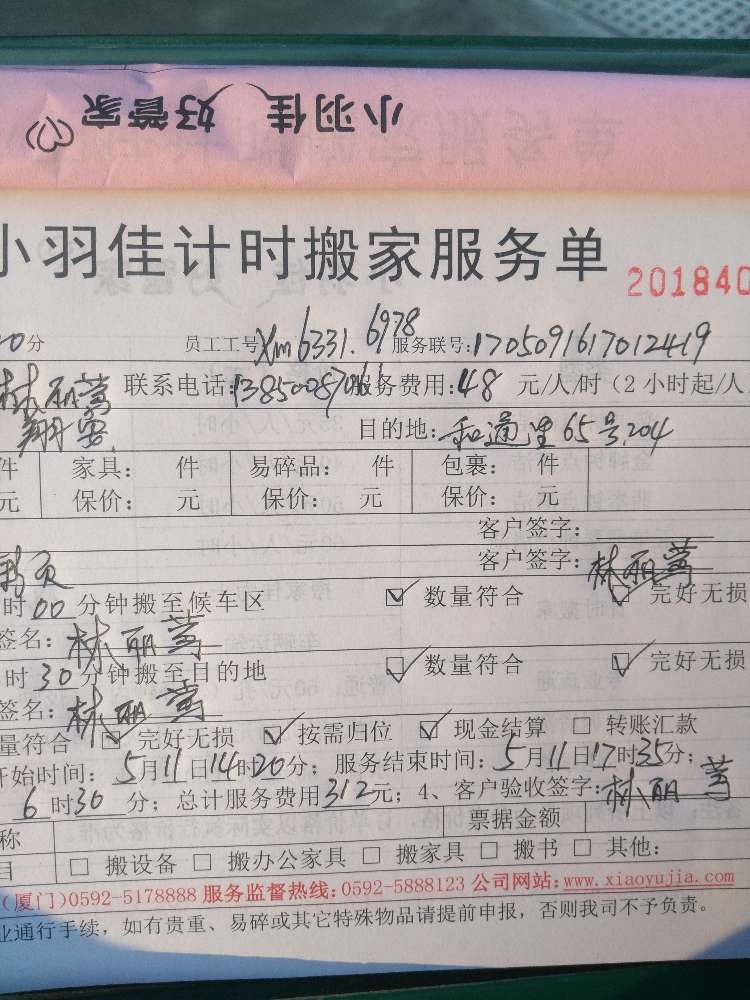 小羽佳 好管家
小羽佳计时搬家服务单 201840
0分 员工工号Xm6331.6978 服务联号:1705091617012419
林丽莺 联系电话:1385008 服务费用:48 元/人/时(2小时起/人
翔安 目的地:和通里65号204
件 家具: 件 易碎品: 件 包裹: 件
元 保价: 元 保价: 元 保价: 元
客户签字:
客户签字:林丽莺
时00分钟搬至候车区 ☑ 数量符合 ☑ 完好无损
签名:林丽莺
时30分钟搬至目的地 ☑ 数量符合 ☑ 完好无损
签名:林丽莺
量符合 ☑ 完好无损 ☑ 按需归位 ☑ 现金结算 □ 转账汇款
开始时间:5月11日14时20分;服务结束时间:5月11日17时35分;
6时30分;总计服务费用312元;4、客户验收签字:林丽莺
称 票据金额
目 □ 搬设备 □ 搬办公家具 □ 搬家具 □ 搬书 □ 其他:
(厦门)0592-5178888 服务监督热线:0592-5888123 公司网站:www.xiaoyujia.com
业通行手续,如有贵重、易碎或其它特殊物品请提前申报,否则我司不予负责。